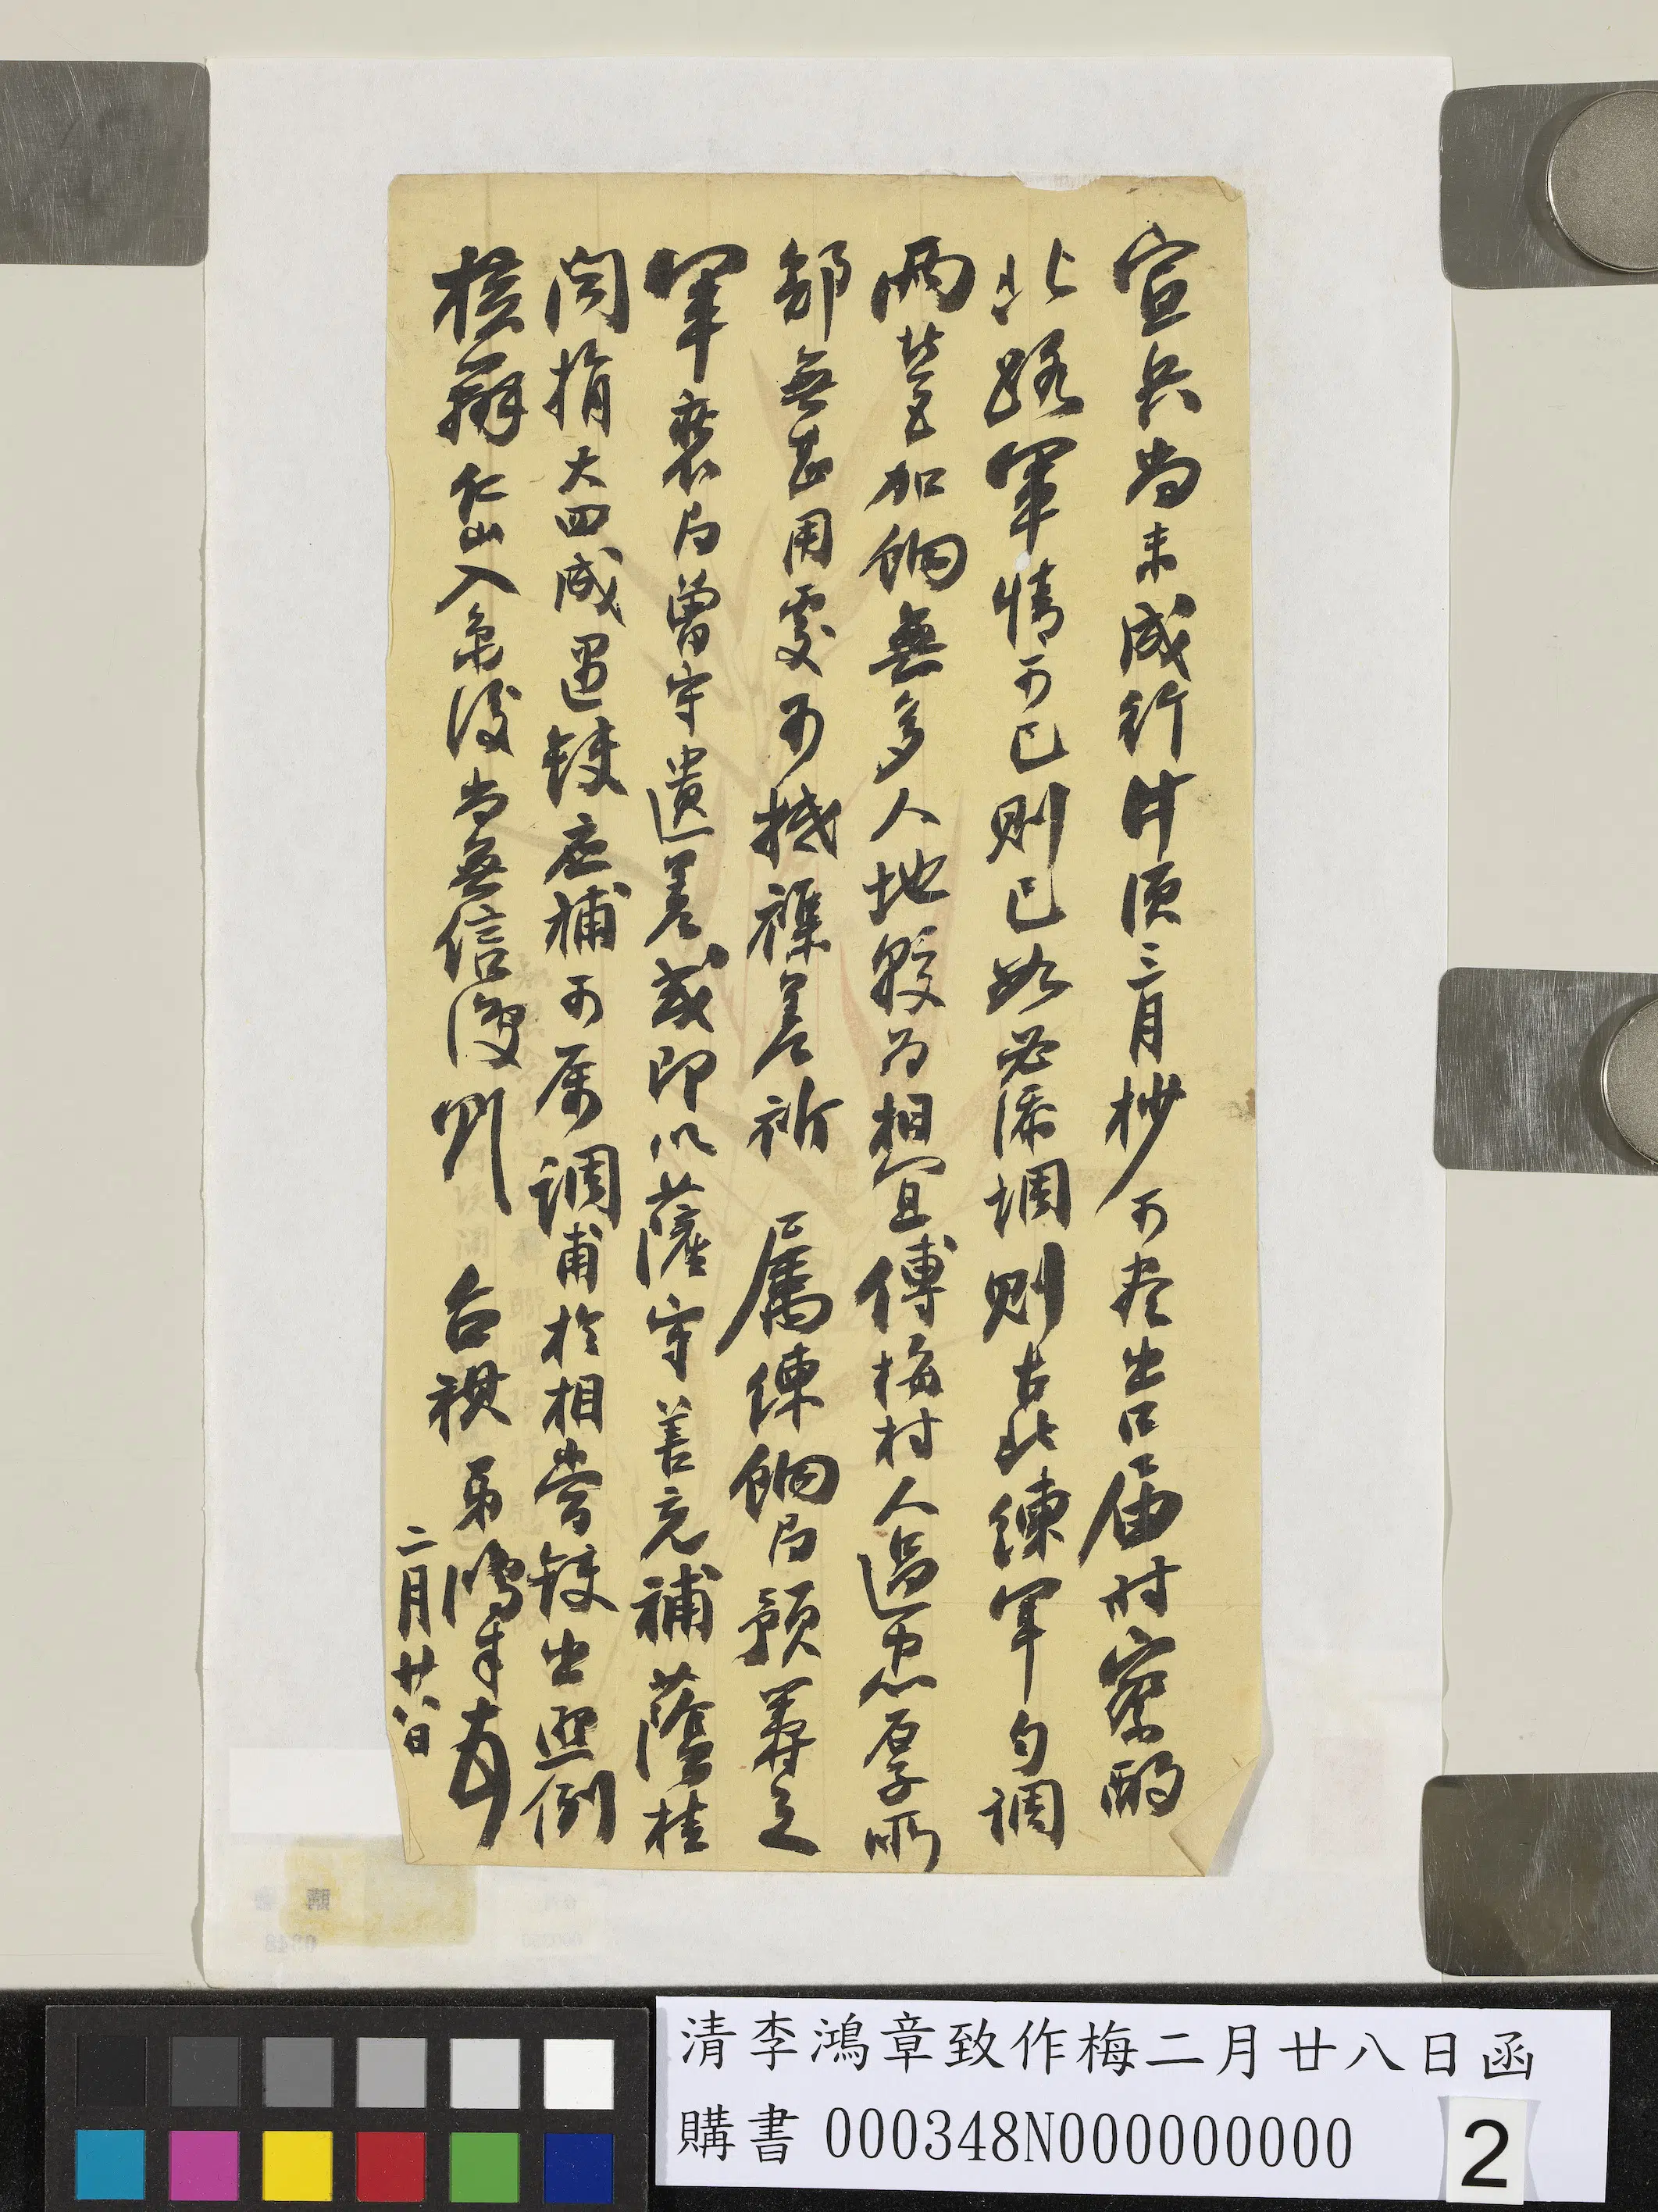 宣兵尚未成行計須三月杪可盡出口屆時察酌
北路軍情可已則已如必添調則古北練軍勻調
兩營加餉無多人地較為相宜傅梅村人過忠厚所
部無甚用處可撼襍差祈 屬練餉局預籌之
軍裘局曾守遺差或即以薩守善充補蔭桂
閏捐大四咸遇缺應補可屬調甫於相當缺出照例
核辦仁山入京後尚無信復到
台祺 弟鴻章頓首
二月廿八日
清李鴻章致作梅二月廿八日函
購書 000348N000000000
2